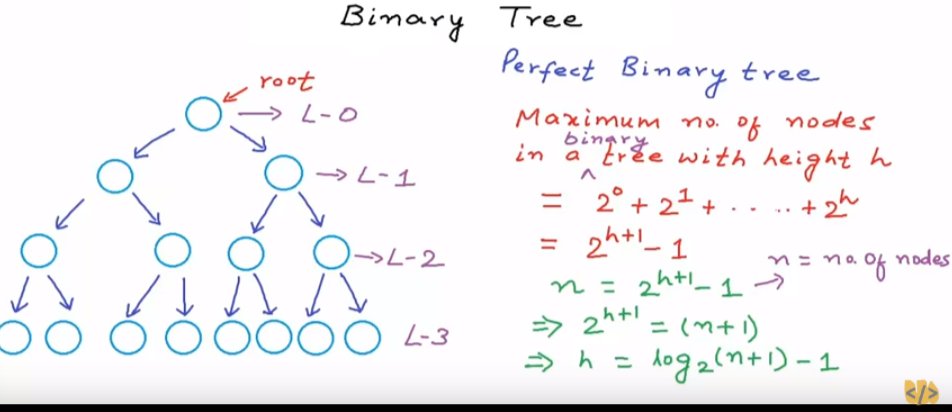 Binary Tree
root
L-0
L-1
L-2
L-3
Perfect Binary tree
Maximum no. of nodes
binary
in a ^ tree with height h
= 2⁰ + 2¹ + . . . .. + 2ʰ
= 2ʰ⁺¹ - 1
n = 2ʰ⁺¹ - 1 → n = no. of nodes
⇒ 2ʰ⁺¹ = (n+1)
⇒ h = log₂(n+1) - 1
</>